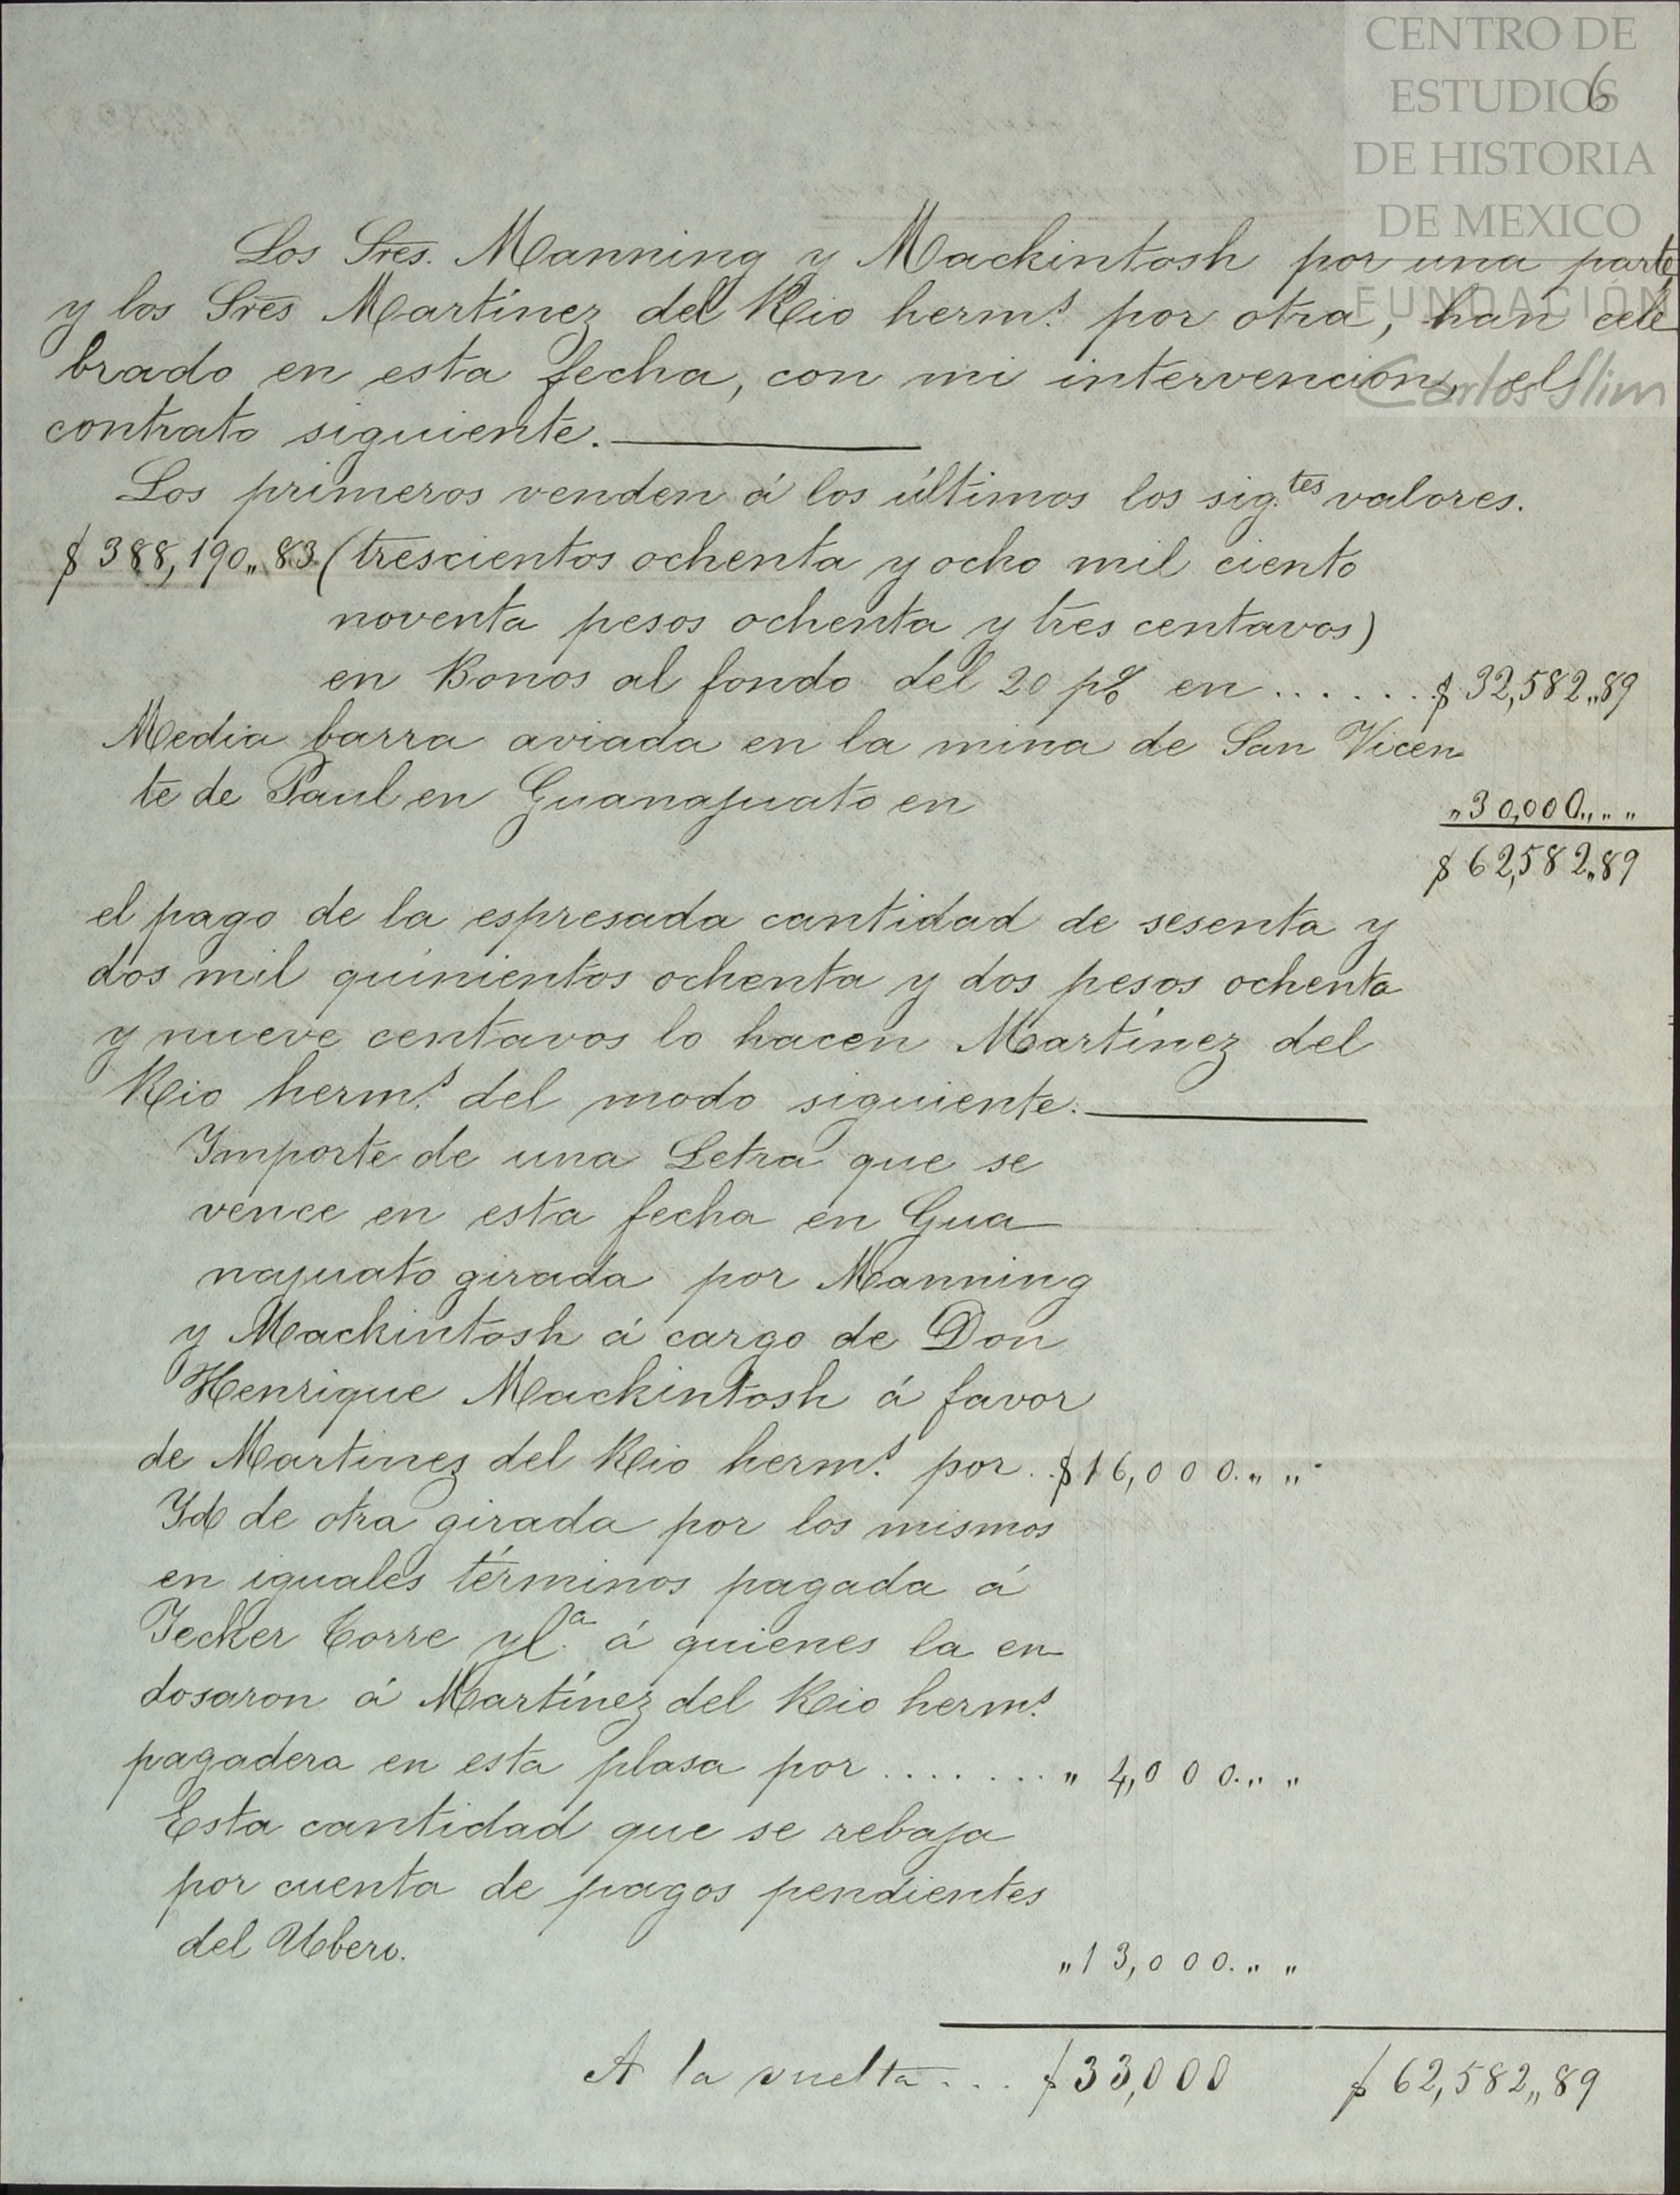 CENTRO DE
ESTUDIOS
6
DE HISTORIA
DE MEXICO
FUNDACIÓN
Carlos Slim
Los Sres. Manning y Mackintosh por una parte
y los Sres Martínez del Rio herms. por otra, han cele
brado en esta fecha, con mi intervención, el
contrato siguiente.
Los primeros venden á los últimos los sig.tes valores.
$ 388,190„ 83 (trescientos ochenta y ocho mil ciento
noventa pesos ochenta y tres centavos)
en Bonos al fondo del 20 p% en . . . . . . $ 32,582„89
Media barra aviada en la mina de San Vicen
te de Paul en Guanajuato en „30,000„ „ „
$ 62,582„89
el pago de la espresada cantidad de sesenta y
dos mil quinientos ochenta y dos pesos ochenta
y nueve centavos lo hacen Martínez del
Rio herms. del modo siguiente.
Importe de una Letra que se
vence en esta fecha en Gua
najuato girada por Manning
y Mackintosh á cargo de Don
Henrique Mackintosh á favor
de Martinez del Rio herms. por . . $16,000. „ „
Id de otra girada por los mismos
en iguales términos pagada á
Jecker Torre y C.a á quienes la en
dosaron á Martínez del Rio herms.
pagadera en esta plasa por . . . . . . . „ 4,000. „ „
Esta cantidad que se rebaja
por cuenta de pagos pendientes
del Ubero. „13,000. „ „
A la vuelta . . . $33,000 $ 62,582„89